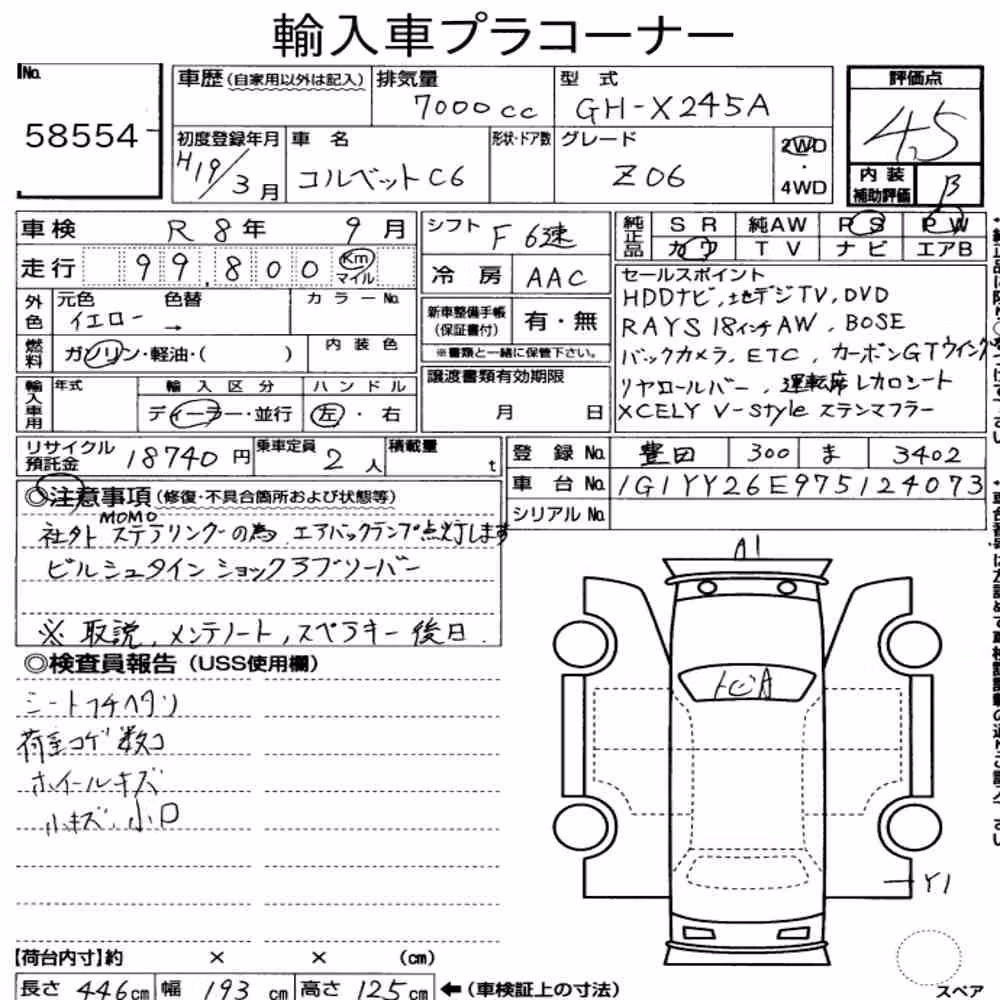 輸入車プラコーナー
No. 58554
車歴(自家用以外は記入)
排気量 7000cc
型式 GH-X245A
評価点 4.5
初度登録年月 H19/3月
車名 コルベットC6
形状・ドア数
グレード Z06
2WD・4WD
内装補助評価 B
車検 R 8年 9月
走行 99,800 Km マイル
シフト F 6速
冷房 AAC
純正品 SR 純AW PS PW
カワ TV ナビ エアB
外色 元色 イエロー 色替 → カラーNo.
新車整備手帳(保証書付) 有・無
※書類と一緒に保管下さい。
燃料 ガソリン・軽油・( ) 内装色
輸入車用 年式 輸入区分 ディーラー・並行 ハンドル 左・右
譲渡書類有効期限 月 日
セールスポイント
HDDナビ,地デジTV,DVD
RAYS 18インチAW, BOSE
バックカメラ,ETC,カーボンGTウイング
リヤロールバー,運転席レカロシート
XCELY V-Style ステンマフラー
リサイクル預託金 18740円
乗車定員 2人
積載量 t
登録No. 豊田 300 ま 3402
車台No. 1G1YY26E975124073
シリアルNo.
◎注意事項(修復・不具合箇所および状態等)
MOMO
社外ステアリングの為 エアバックランプ点灯します
ビルシュタイン ショックアブソーバー
※ 取説,メンテノート,スペアキー後日.
◎検査員報告(USS使用欄)
シートフチヘタリ
荷室コゲ数コ
ホイールキズ
小キズ、小凹
A1
トビA
Y1
スペア
【荷台内寸】約 × × (cm)
長さ 446cm 幅 193cm 高さ 125cm ←(車検証上の寸法)